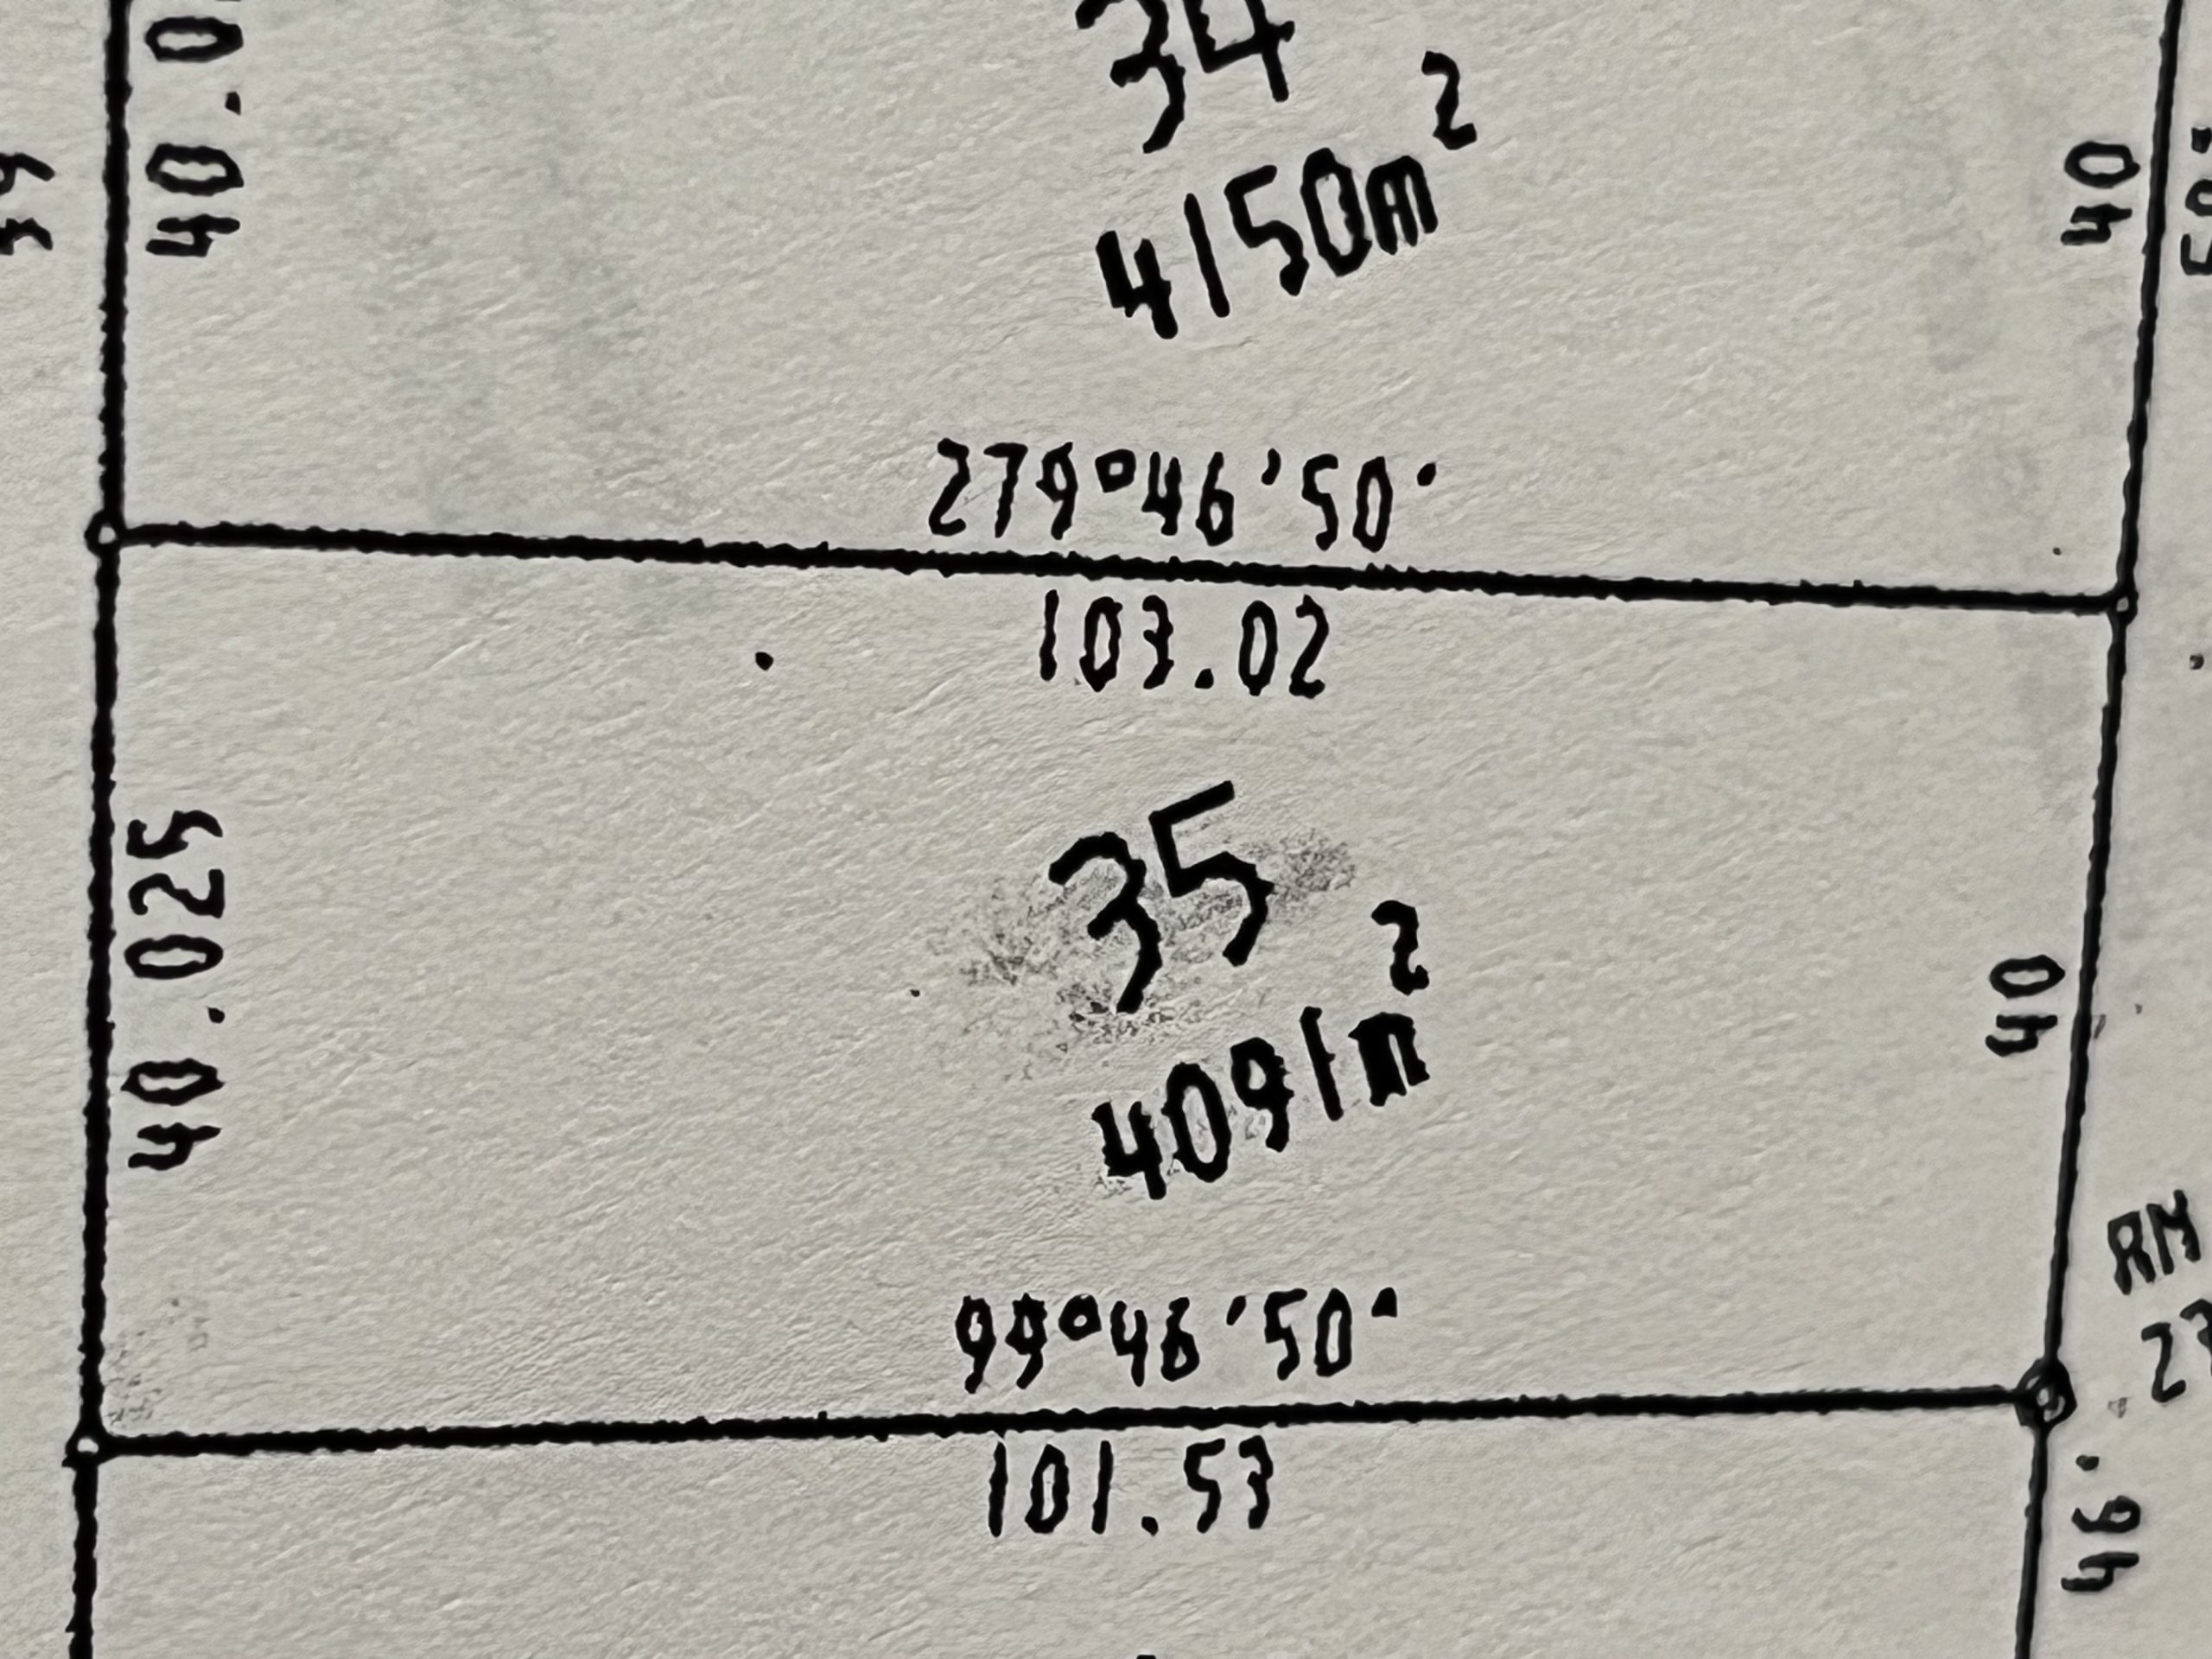 34
4150m²
40
279°46'50"
103.02
35
4091m²
40.025
40
99°46'50"
101.53
RM